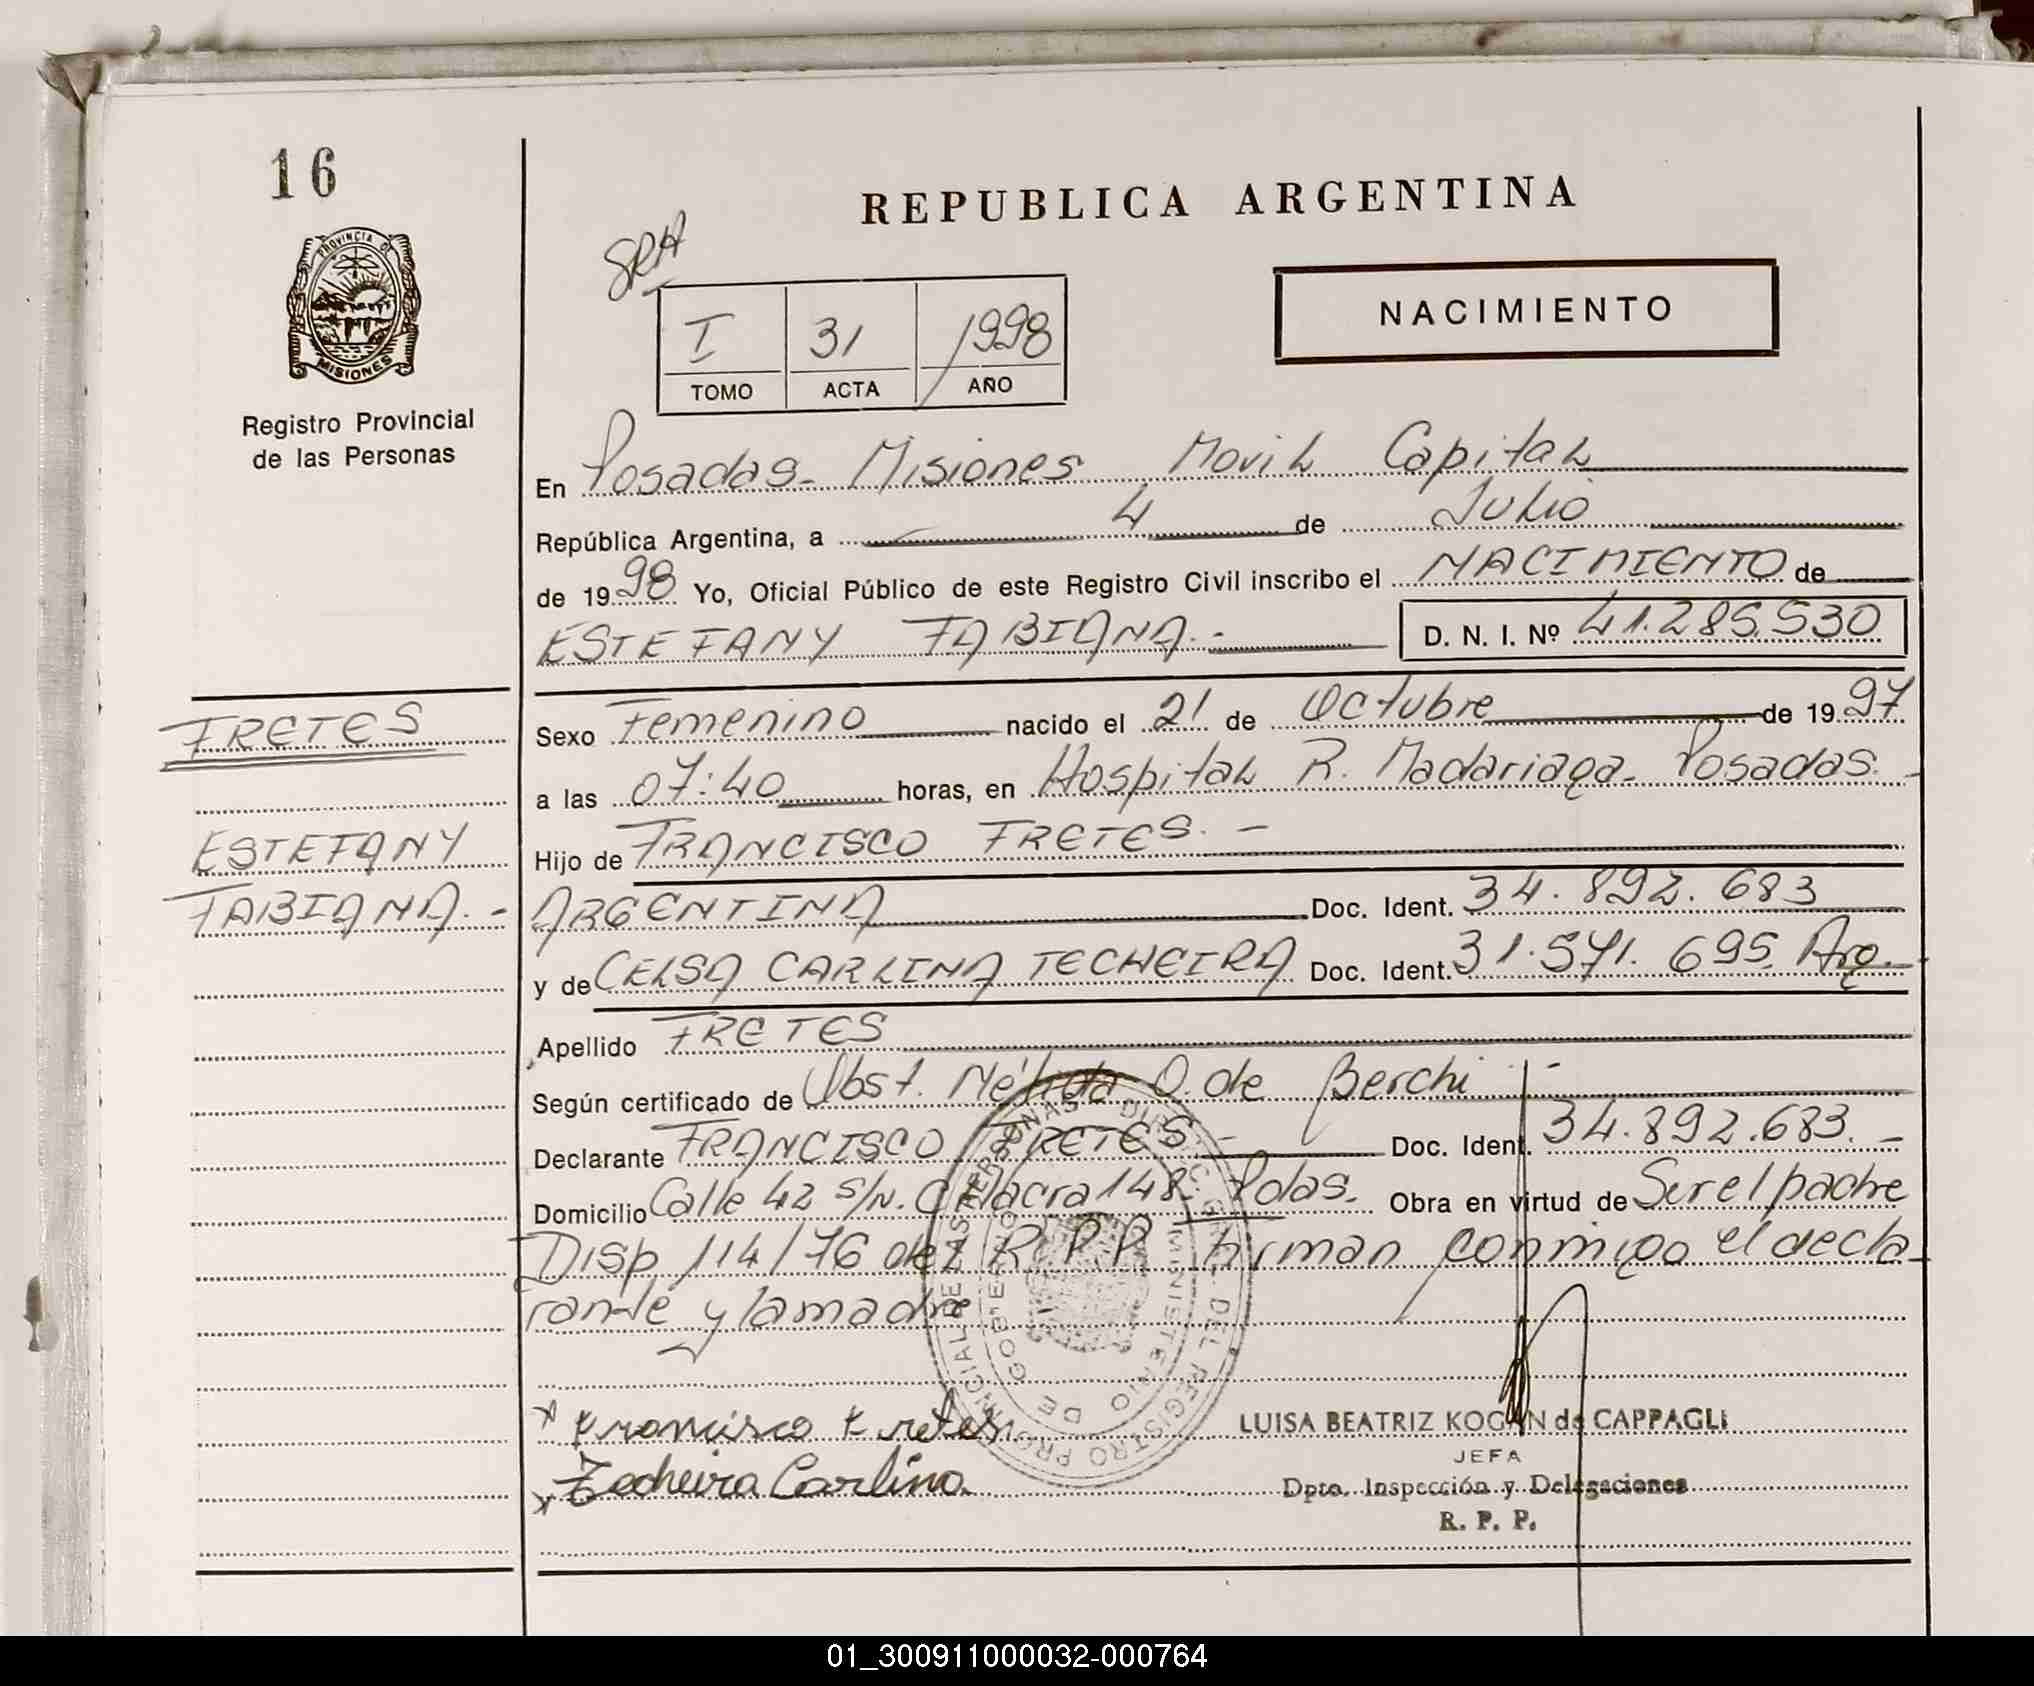 16
REPUBLICA ARGENTINA
SRA
PROVINCIA DE
MISIONES
I 31 1998
TOMO ACTA AÑO
NACIMIENTO
Registro Provincial
de las Personas
En Posadas - Misiones Movil Capital
República Argentina, a 4 de Julio
de 1998 Yo, Oficial Público de este Registro Civil inscribo el NACIMIENTO de
ESTEFANY FABIANA.- D. N. I. Nº 41.285.530
FRETES
Sexo Femenino nacido el 21 de Octubre de 1997
a las 07:40 horas, en Hospital R. Madariaga - Posadas. -
ESTEFANY
FABIANA. -
Hijo de FRANCISCO FRETES. -
ARGENTINA Doc. Ident. 34.892.683
y de CELSA CARLINA TECHEIRA Doc. Ident. 31.571.695 Arg.
Apellido FRETES
Según certificado de Obst. Nélida O. de Berchi -
Declarante FRANCISCO FRETES - Doc. Ident. 34.892.683. -
Domicilio Calle 42 s/n. Chacra 148 - Pdas. Obra en virtud de Ser el padre
Disp. 114/76 del R.P.P. firman conmigo el decla-
rante y la madre
DIRECC. GRAL. DEL REGISTRO PROVINCIAL DE LAS PERSONAS
MINISTERIO DE GOBIERNO
x Francisco Fretes
x Techeira Carlina.
LUISA BEATRIZ KOGAN de CAPPAGLI
JEFA
Dpto. Inspección y Delegaciones
R. P. P.
01_300911000032-000764